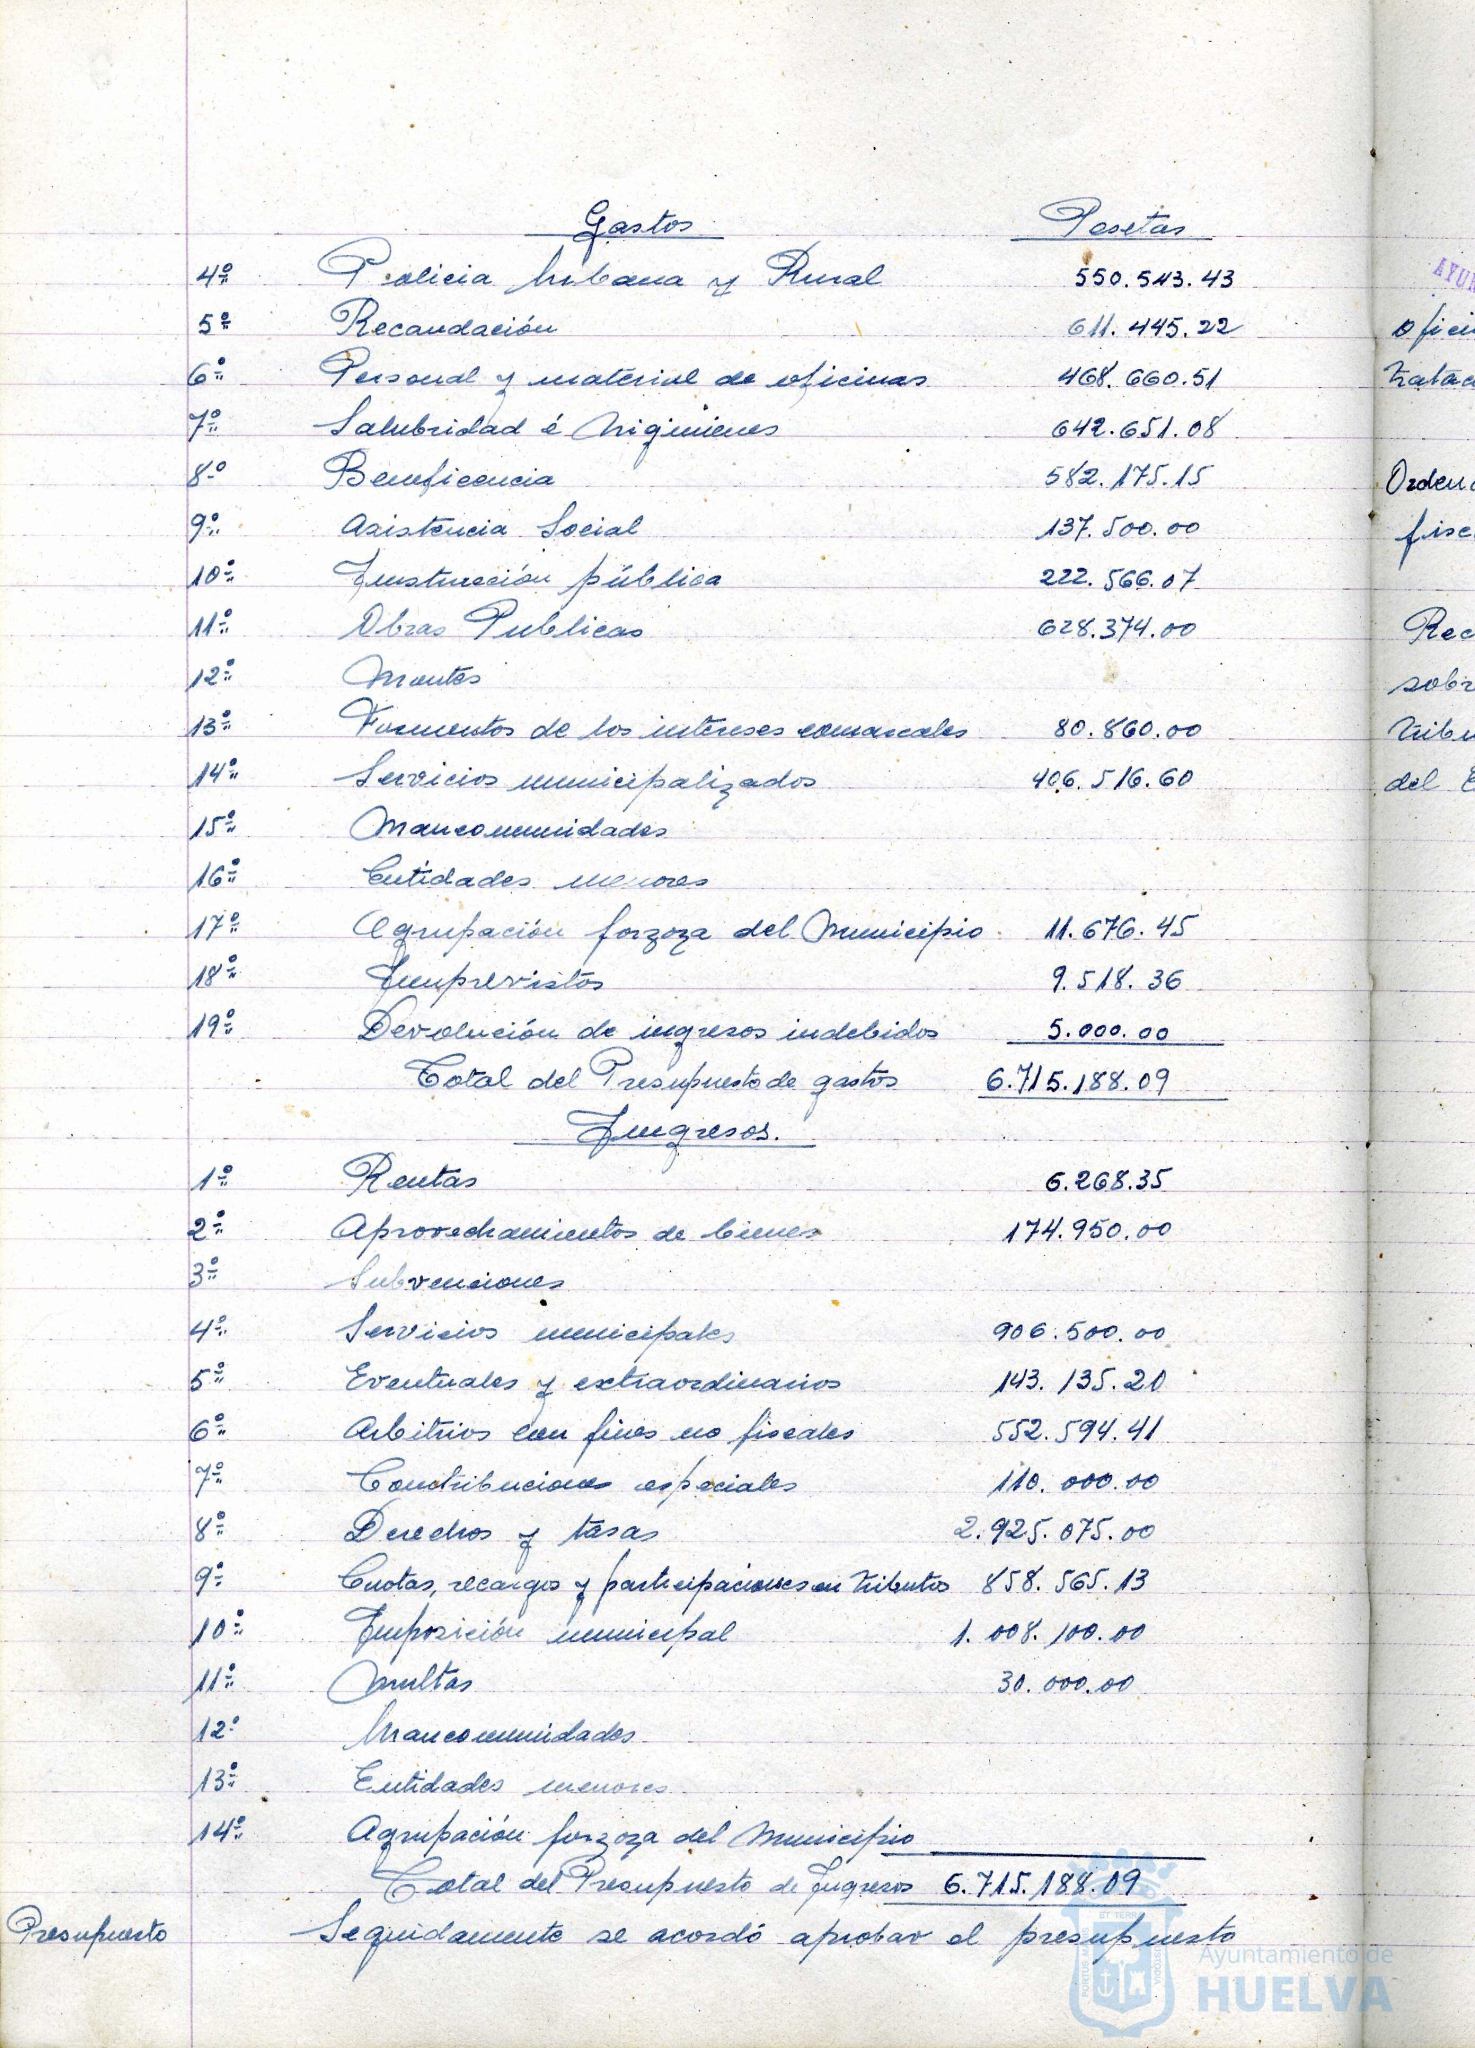 Gastos Pesetas
4º Policia Urbana y Rural 550.513.43
5º Recaudación 611.445.22
6º Personal y material de oficinas 468.660.51
7º Salubridad é higiénes 642.651.08
8º Beneficencia 582.175.15
9º Asistencia Social 137.500.00
10º Instrucción pública 222.566.07
11º Obras Publicas 628.374.00
12º Montes
13º Fomentos de los intereses comarcales 80.860.00
14º Servicios municipalizados 406.516.60
15º Mancomunidades
16º Entidades menores
17º Agrupación forzoza del Municipio 11.676.45
18º Imprevistos 9.518.36
19º Devolución de ingresos indebidos 5.000.00
Total del Presupuesto de gastos 6.715.188.09
Ingresos.
1º Rentas 6.268.35
2º Aprovechamientos de bienes 174.950.00
3º Subvenciones
4º Servicios municipales 906.500.00
5º Eventuales y extraordinarios 143.135.20
6º Arbitrios con fines no fiscales 552.594.41
7º Contribuciones especiales 110.000.00
8º Derechos y tasas 2.925.075.00
9º Cuotas, recargos y participaciones en tributos 858.565.13
10º Imposición municipal 1.008.100.00
11º Multas 30.000.00
12º Mancomunidades
13º Entidades menores
14º Agrupación forzoza del Municipio
Total del Presupuesto de Ingresos 6.715.188.09
Presupuesto Seguidamente se acordó aprobar el presupuesto
Ayuntamiento de
HUELVA